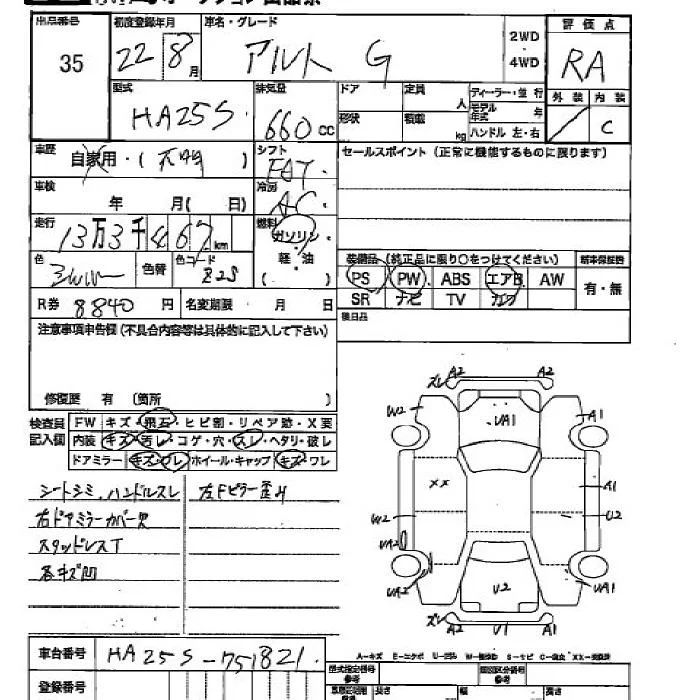 出品番号 初度登録年月 車名・グレード 評価点
35 22 8月 アルト G 2WD・4WD RA
型式 HA25S 排気量 660cc
ドア 定員 人 ディーラー・並行
形状 積載 kg モデル年式 年
ハンドル 左・右
外装 内装 C
車歴 自家用・( ) シフト FAT
セールスポイント (正常に機能するものに限ります)
車検 年 月( 日) 冷房 AC
走行 13万3千467km 燃料 ガソリン・軽・油 ( )
色 シルバー 色替 色コード Z2S
装備品 (純正品に限り○をつけてください) 新車保証書
PS PW ABS エアB AW 有・無
SR ナビ TV カワ
R券 8840円 名変期限 月 日
後日品
注意事項申告欄(不具合内容等は具体的に記入して下さい)
修復歴 有 (箇所 )
検査員記入欄
FW キズ・飛石・ヒビ割・リペア跡・X要
内装 キズ・汚レ・コゲ・穴・スレ・ヘタリ・破レ
ドアミラー キズ・ワレ ホイール・キャップ キズ・ワレ
シートシミ、ハンドルスレ 左Fピラー歪み
右ドアミラーカバー欠
スタッドレスT
各キズ凹
ズレ A2 A2
W2 UA1 A1
XX A1
W2 U2
UA2
UA2 U2 UA1
ズレ A2 U1 A1
車台番号 HA25S-751821
登録番号
型式指定番号 参考 類別区分番号 参考
長さ 幅 高さ